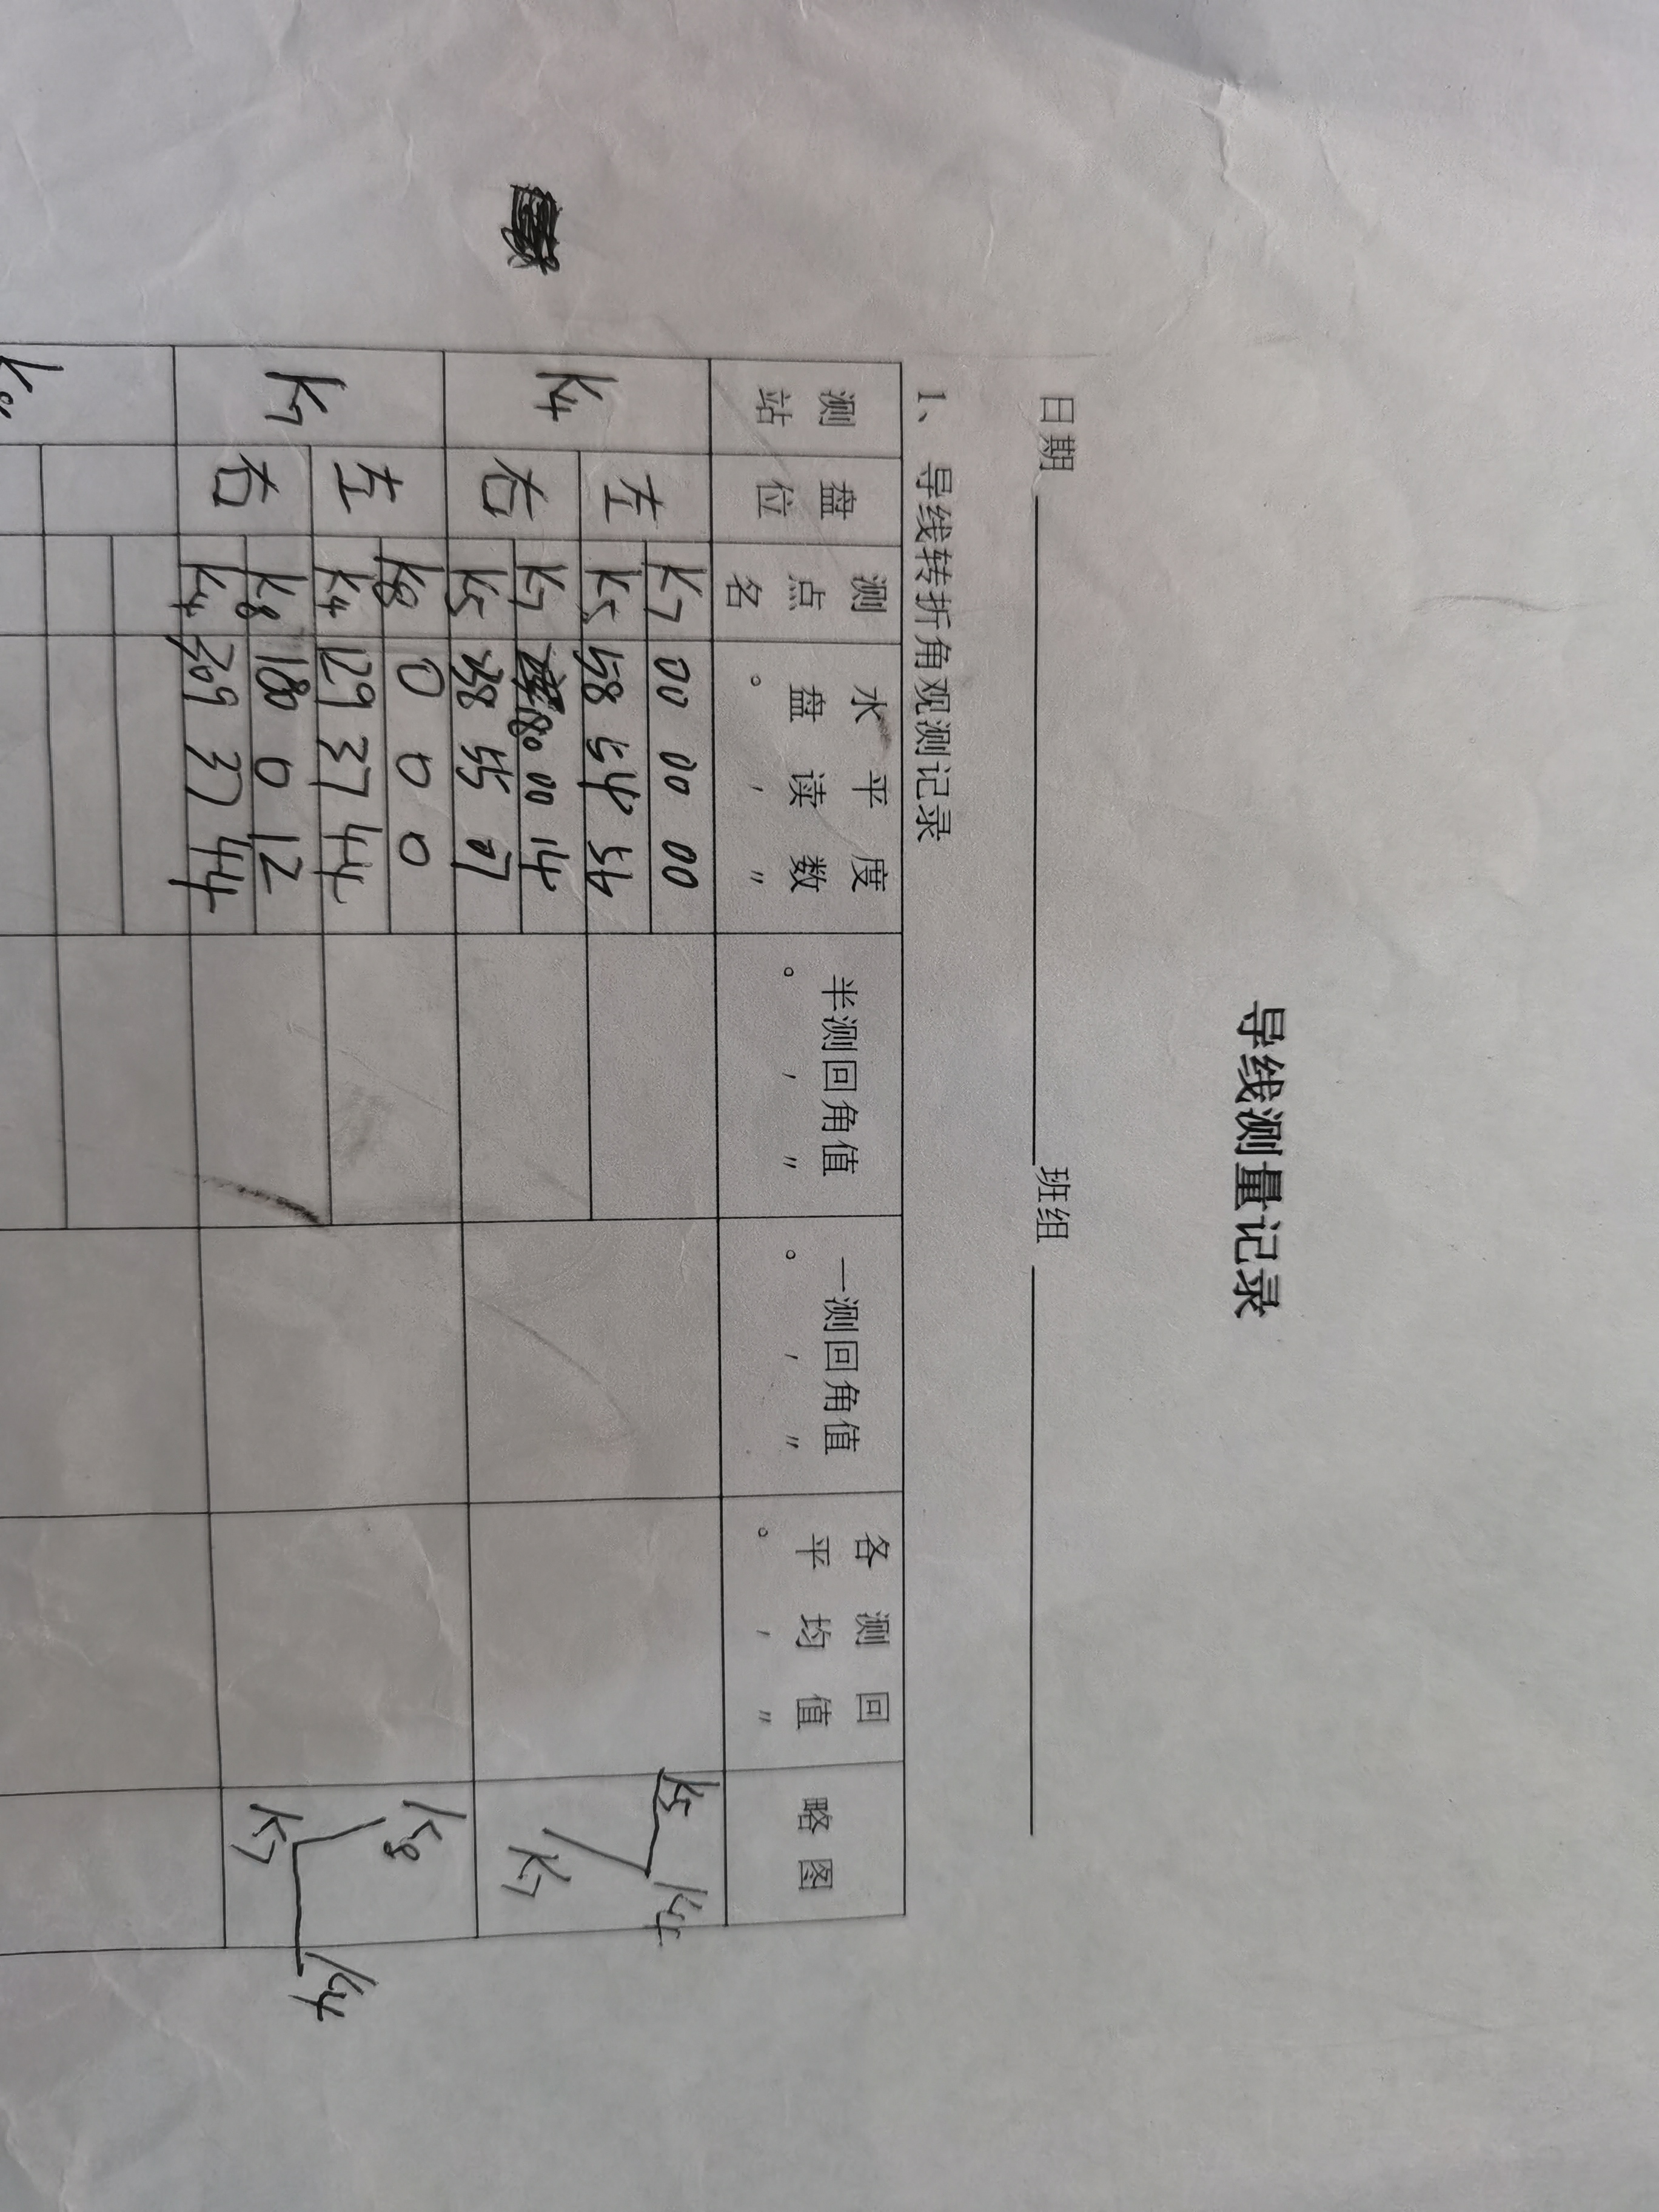 导线测量记录
日期 班组
1、 导线转折角观测记录
测站 盘位 测点名 水平度盘读数 ° ′ ″ 半测回角值 ° ′ ″ 一测回角值 ° ′ ″ 各测回平均值 ° ′ ″ 略图
K4 左 K7 00 00 00 K5 K4
K5 58 54 56
右 K7 180 00 14 K7
K5 238 55 07
K7 左 K8 0 0 0 K8
K4 129 37 44 K4
右 K8 180 0 12 K7
K4 309 37 44
K8